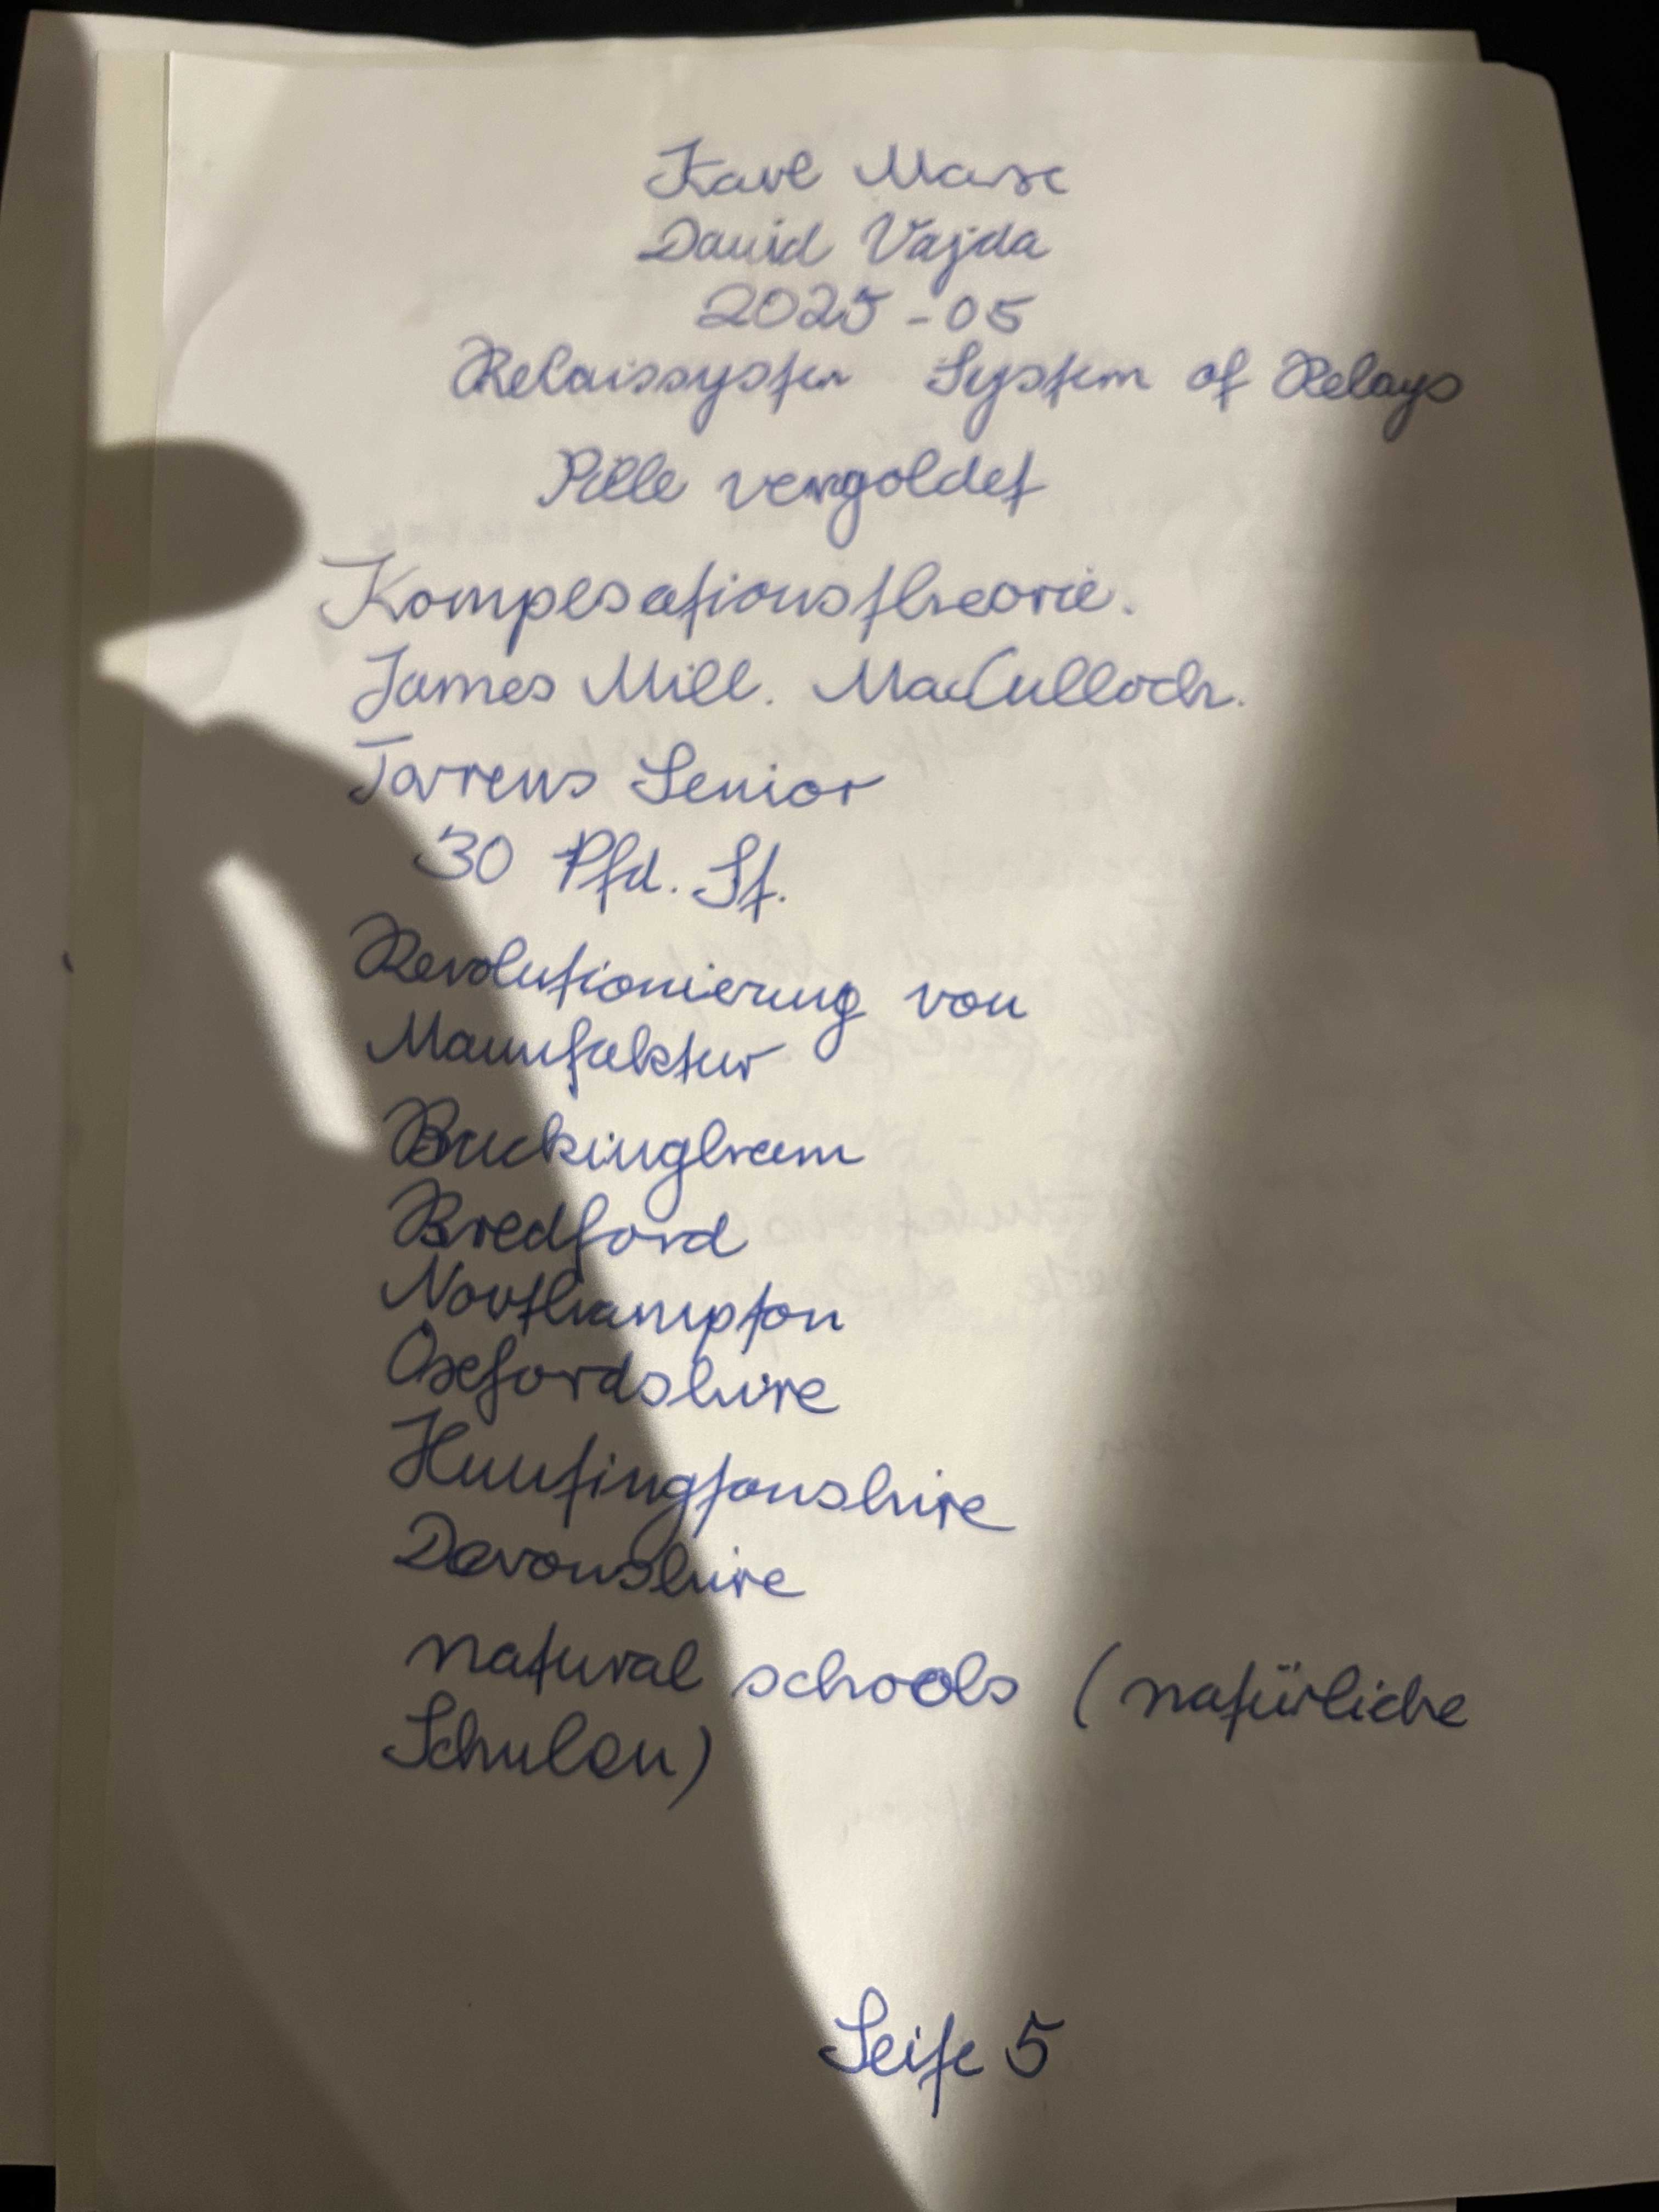 Karl Marx
David Vajda
2025-05
Relaissystem System of Relays
Pille vergoldet
Kompesationstheorie.
James Mill. MacCulloch.
Torrens Senior
30 Pfd. St.
Revolutionierung von
Manufaktur
Buckingham
Bredford
Northampton
Oxefordshire
Huntingtonshire
Devonshire
natural schools (natürliche
Schulen)
Seite 5